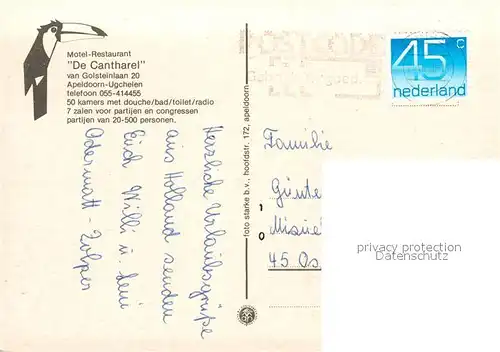 Motel-Restaurant
"De Cantharel"
van Golsteinlaan 20
Apeldoorn-Ugchelen
telefoon 055-414455
50 kamers met douche/bad/toilet/radio
7 zalen voor partijen en congressen
partijen van 20-500 personen.
Herzliche Urlaubsgrüße
aus Holland senden
Euch Willi u. Leni
Odermatt-
foto starke b.v., hoofdstr. 172, apeldoorn
POSTCODE
goed.
45 c
nederland
Familie
Günte
45 Os
privacy protection
Datenschutz